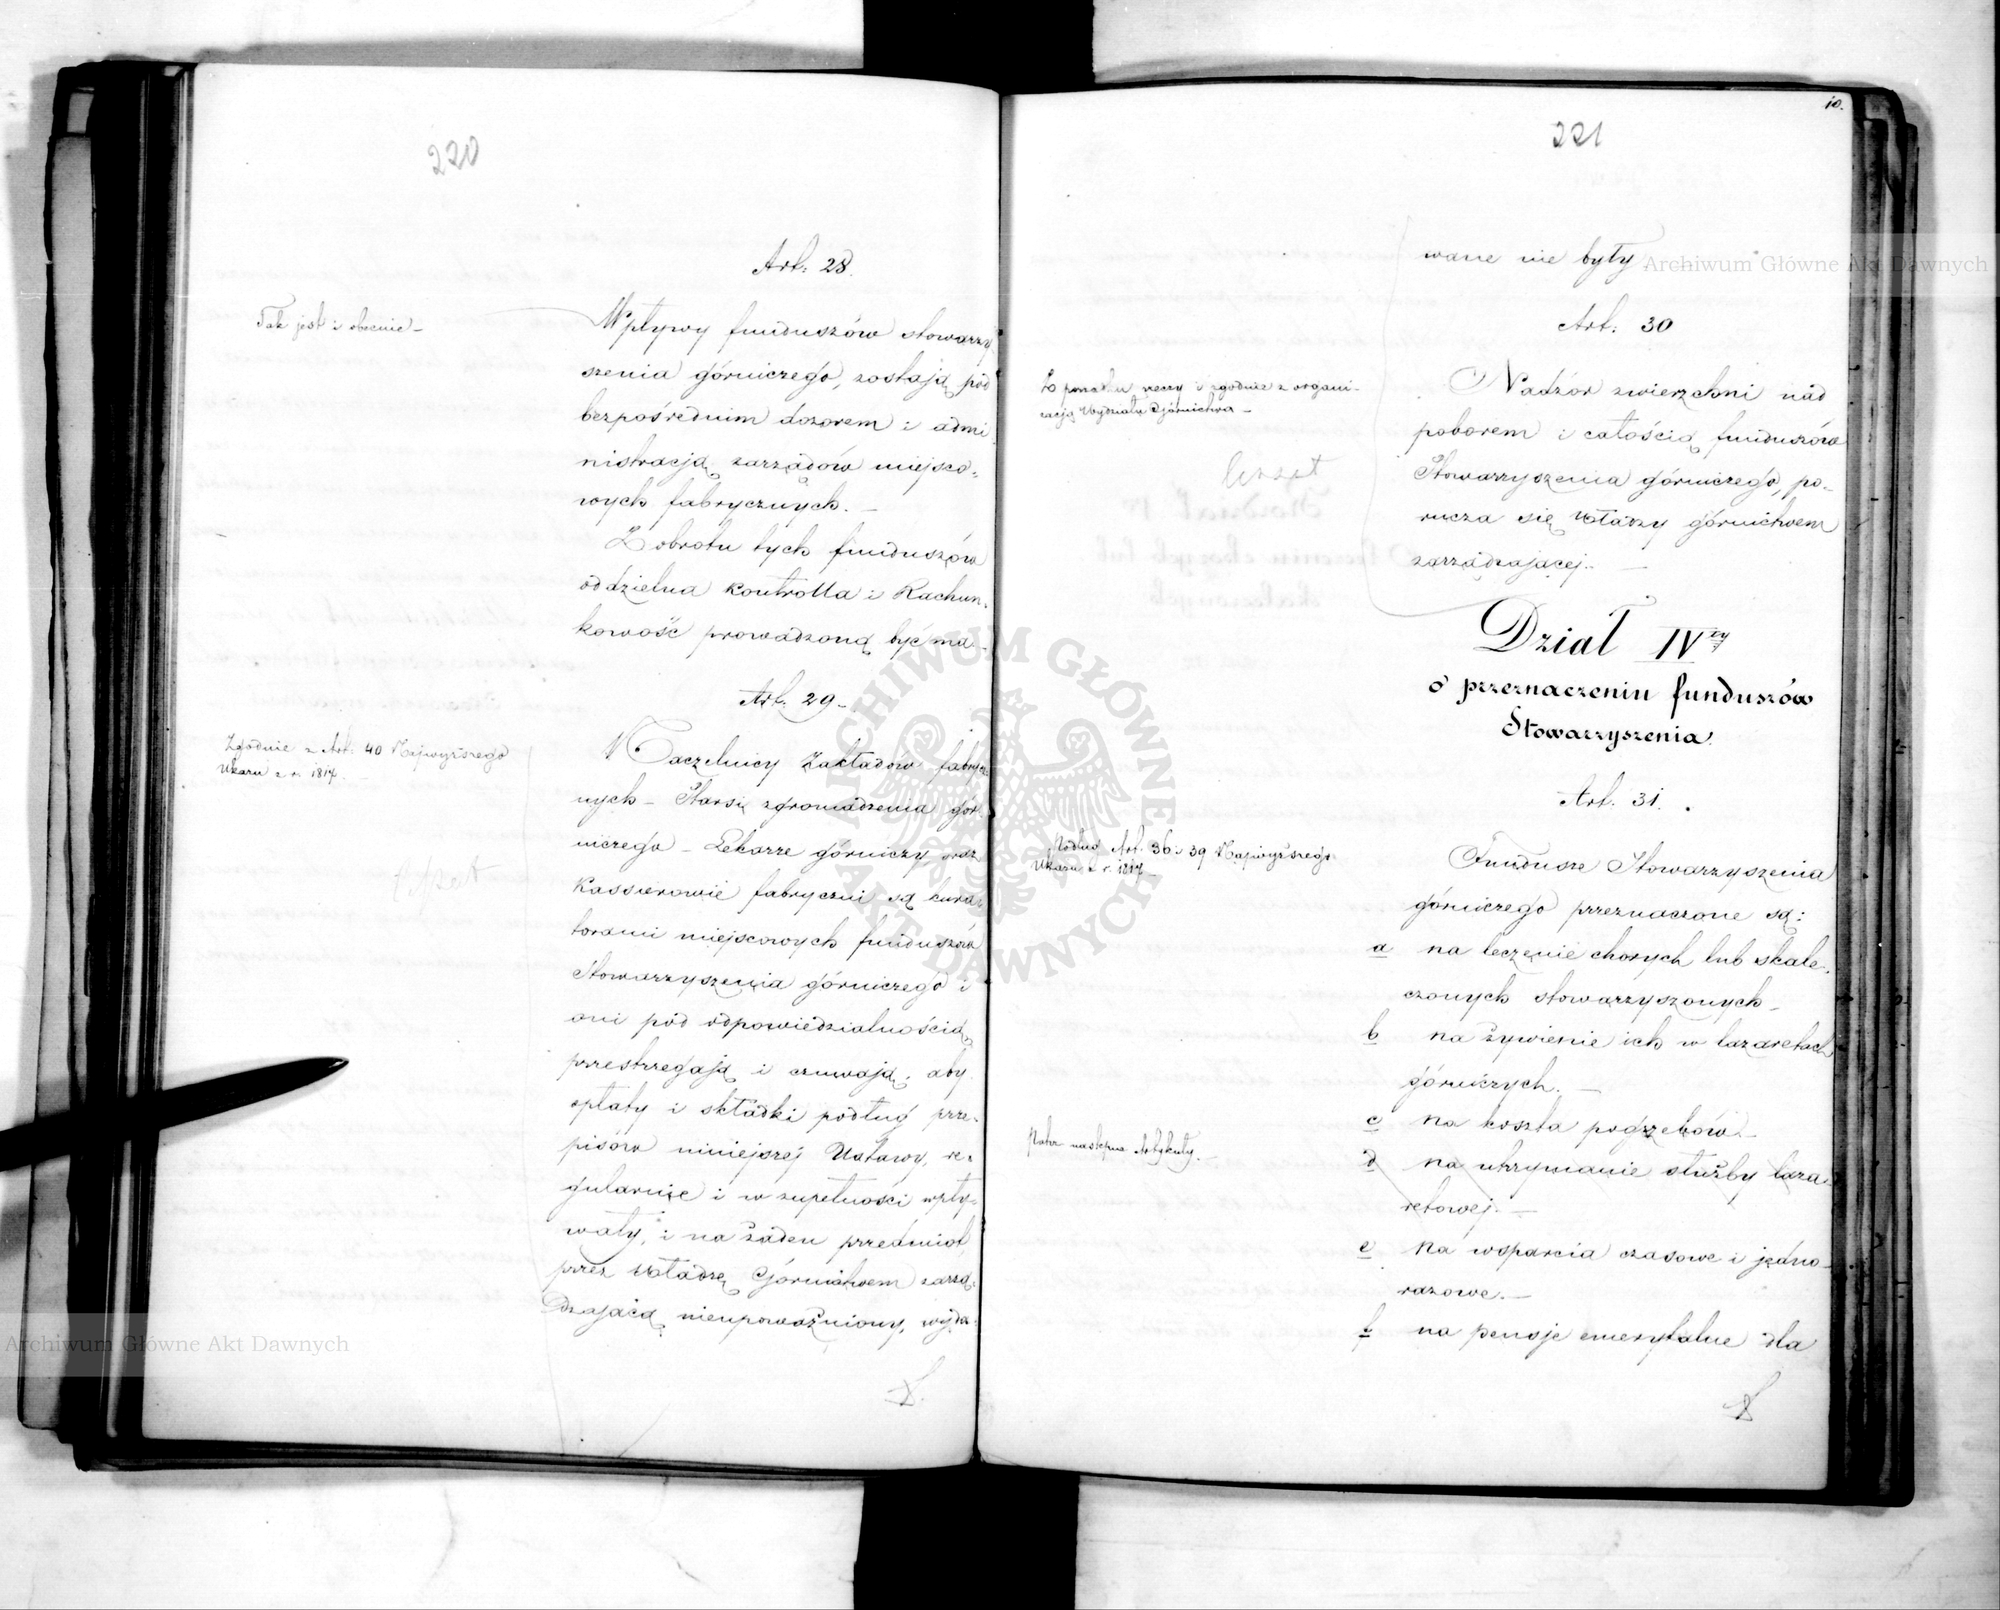 220
Art: 28.
Tak jest i obecnie –
Wpływy funduszów stowarzy
szenia górniczego, zostają pód
bezpośrednim dozorem i admi
nistracją zarządów miejsco-
wych fabrycznych. –
Z obrotu tych funduszów
oddzielna kontrolla i Rachun-
kowość prowadzoną być ma –
Art: 29 –
Zgodnie z Art: 40 Najwyższego
Ukazu z r. 1817. –
Naczelnicy Zakładów fabrycz-
nych – Starsi zgromadzenia gór-
niczego – Lekarze górniczy oraz
Kassierowie fabryczni są kura-
torami miejscowych funduszów
Stowarzyszenia górniczego i
oni pód odpowiedzialnością
przestrzegają i czuwają, aby
opłaty i składki podług prze-
pisów niniejszej Ustawy, re-
gularnie i w zupełności wpły-
wały, i na żaden przedmiot,
przez Władzę Górnictwem zarzą-
dzającą nieupoważniony, wyda-
10.
221
wane nie były
Art: 30
Z porządku rzeczy i zgodnie z organi-
zacją Wydziału Górnictwa –
Nadzór zwierzchni nád
poborem i całością funduszów
Stowarzyszenia górniczego, po-
rucza się Władzy górnictwem
zarządzającej. –
Dział IVty
o przeznaczeniu funduszów
Stowarzyszenia.
Art. 31.
Podług Art. 36 i 39 Najwyższego
Ukazu z r. 1817 –
Fundusze Stowarzyszenia
górniczego przeznaczone są:
a na leczenie chorych lub skale-
czonych stowarzyszonych –
b na żywienie ich w lazaretach
górniczych. –
c na koszta pogrzebów. –
Patrz następne Artykuły. –
d na utrzymanie służby laza-
retowej. –
e na wsparcia czasowe i jedno-
razowe. –
f na pensje emerytalne dla
Archiwum Główne Akt Dawnych
Archiwum Główne Akt Dawnych
ARCHIWUM GŁÓWNE AKT DAWNYCH